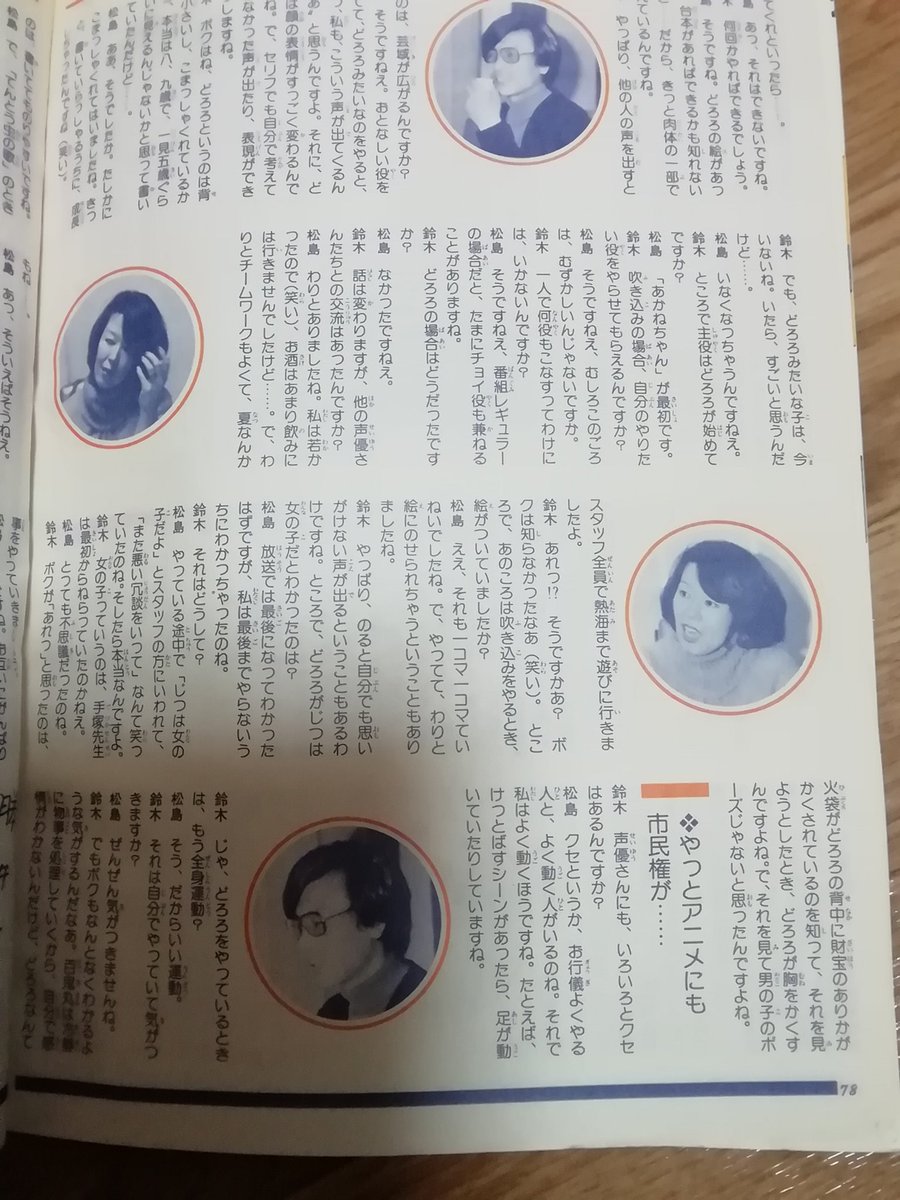 てくれといったら……。
松島　あっ、それはできないですね。
何回かやればできるでしょう。
そうですね。どろろの絵があっ
台本があればできるかも知れない
……だから、きっと肉体の一部で
れているんですね。
やっぱり、他の人の声を出すと
のは、芸域が広がるんですか?
そうですねえ。おとなしい役を
って、どろろみたいなのをやると、
私も、こういう声が出てくるん
あ」と思うんですよ。それに、ど
は顔の表情がすっごく変わるんで
ね。で、セリフでも自分で考えて
なかった声が出たり、表現ができ
しますね。
ボクはね、どろろというのは背
小さいし、こまっしゃくれているか
、本当は八、九歳で、一見五歳ぐら
に見えるんじゃないかと思って書い
ていたんだけど……。
松島　ああ、そうでしたか。たしかに
こまっしゃくれてはいましたね。きっ
と、書いていらっしゃるうちに、成長
しちゃったんですね(笑い)。
鈴木　でも、どろろみたいな子は、今
いないね。いたら、すごいと思うんだ
けど……。
松島　いなくなっちゃうんですねえ。
鈴木　ところで主役はどろろが始めて
ですか?
松島　「あかねちゃん」が最初です。
鈴木　吹き込みの場合、自分のやりた
い役をやらせてもらえるんですか?
松島　そうですねえ、むしろこのごろ
は、むずかしいんじゃないですか。
鈴木　一人で何役もこなすってわけに
は、いかないんですか?
松島　そうですねえ、番組レギュラー
の場合だと、たまにチョイ役も兼ねる
ことがありますね。
鈴木　どろろの場合はどうだったです
か?
松島　なかったですねえ。
鈴木　話は変わりますが、他の声優さ
んたちとの交流はあったんですか?
松島　わりとありましたね。私は若か
ったので(笑い)、お酒はあまり飲みに
は行きませんでしたけど……。で、わ
りとチームワークもよくて、夏なんか
スタッフ全員で熱海まで遊びに行きま
したよ。
鈴木　あれっ!?　そうですかあ?　ボ
クは知らなかったなあ(笑い)。とこ
ろで、あのころは吹き込みをやるとき、
絵がついていましたか?
松島　ええ、それも一コマ一コマてい
ねいでしたね。で、やってて、わりと
絵にのせられちゃうということもあり
ましたね。
鈴木　やっぱり、のると自分でも思い
がけない声が出るということもあるわ
けですね。ところで、どろろがじつは
女の子だとわかったのは?
松島　放送では最後になってわかった
はずですが、私は最後までやらないう
ちにわかっちゃったのね。
鈴木　それはどうして?
松島　やっている途中で「じつは女の
子だよ」とスタッフの方にいわれて、
「また悪い冗談をいって」なんて笑っ
ていたのね。そしたら本当なんですよ。
鈴木　女の子っていうのは、手塚先生
は最初からねらっていたのかねえ。
松島　とっても不思議だったのね。
鈴木　ボクが「あれっ」と思ったのは、
火袋がどろろの背中に財宝のありかが
かくされているのを知って、それを見
ようとしたとき、どろろが胸をかくす
んですよね。で、それを見て男の子のポ
ーズじゃないと思ったんですよね。
❖やっとアニメにも
市民権が……
鈴木　声優さんにも、いろいろとクセ
はあるんですか?
松島　クセというか、お行儀よくやる
人と、よく動く人がいるのね。それで
私はよく動くほうですね。たとえば、
けっとばすシーンがあったら、足が動
いていたりしていますね。
鈴木　じゃ、どろろをやっているとき
は、もう全身運動?
松島　そう、だからいい運動。
鈴木　それは自分でやっていて気がつ
きますか?
松島　ぜんぜん気がつきませんね。
鈴木　でもボクもなんとなくわかるよ
うな気がするんだなあ。百鬼丸は冷静
に物事を処理していくから、自分で感
情がわかないんだけど、どろろなんて
78